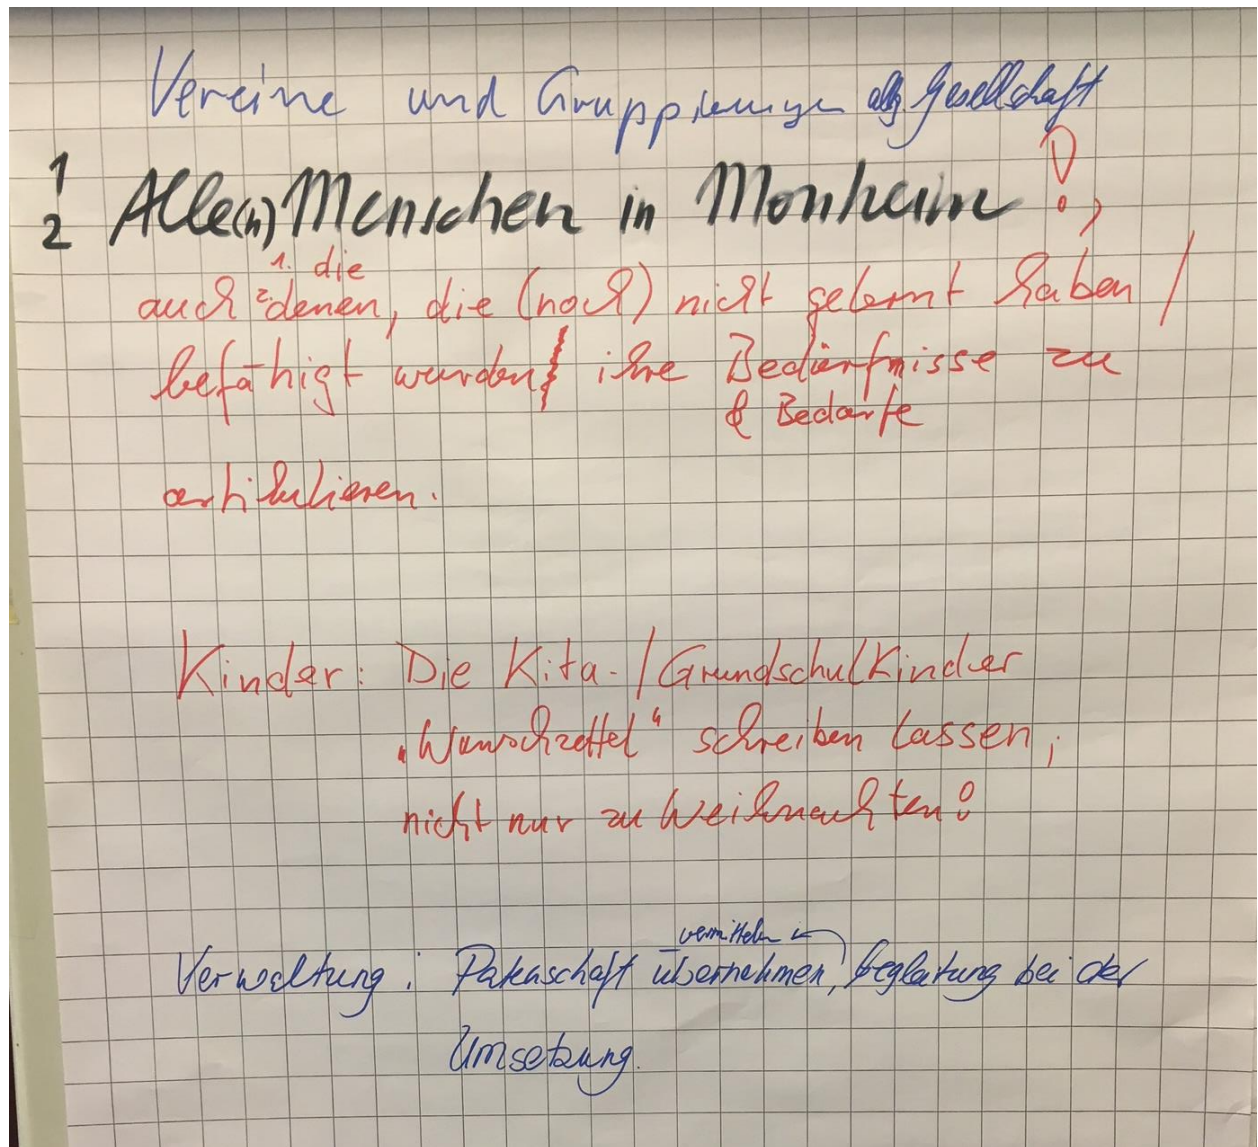 Vereine und Gruppierungen als Gesellschaft
1
2 Alle(n) Menschen in Monheim !,
1. die
auch 2. denen, die (noch) nicht gelernt haben /
befähigt wurden, ihre Bedürfnisse zu
& Bedarfe
artikulieren.
Kinder: Die Kita-/Grundschulkinder
„Wunschzettel“ schreiben lassen,
nicht nur zu Weihnachten!
vermitteln
Verwaltung: Patenschaft übernehmen, Begleitung bei der
Umsetzung.